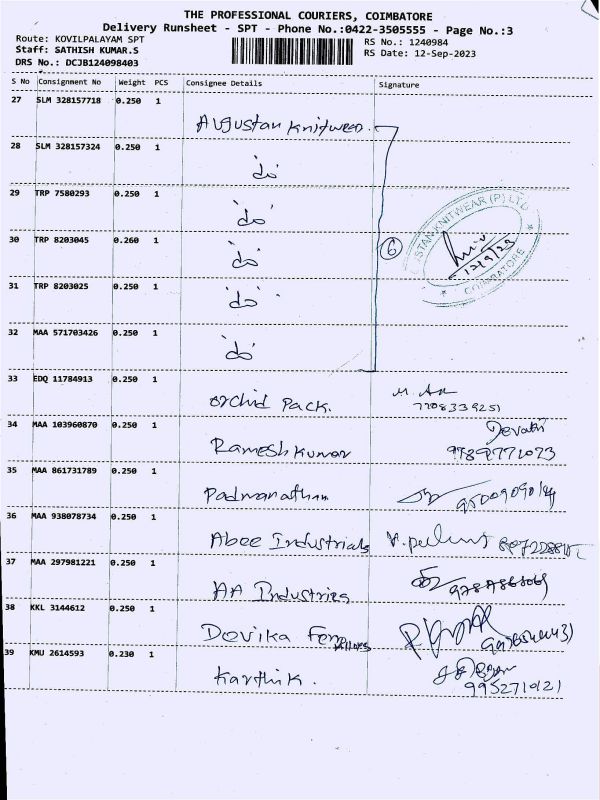 THE PROFESSIONAL COURIERS, COIMBATORE
Delivery Runsheet - SPT - Phone No.:0422-3505555 - Page No.:3
Route: KOVILPALAYAM SPT
RS No.: 1240984
Staff: SATHISH KUMAR.S
RS Date: 12-Sep-2023
DRS No.: DCJB124098403
S No Consignment No Weight PCS Consignee Details Signature
27 SLM 328157718 0.250 1
28 SLM 328157324 0.250 1
do
29 TRP 7580293 0.250 1
do
30 TRP 8203045 0.260 1
do
6
KNITWEAR (P) LTD
12/9/23
COIMBATORE
31 TRP 8203025 0.250 1
do
32 MAA 571703426 0.250 1
do
33 EDQ 11784913 0.250 1
orchid Pack.
7708339251
34 MAA 103960870 0.250 1
Ramesh Kumar
Revathi
9789771023
35 MAA 861731789 0.250 1
Padmanathan
36 MAA 938078734 0.250 1
Abee Industrials
37 MAA 297981221 0.250 1
AA Industries
38 KKL 3144612 0.250 1
Devika
39 KMU 2614593 0.230 1
Karthik.
9952710121